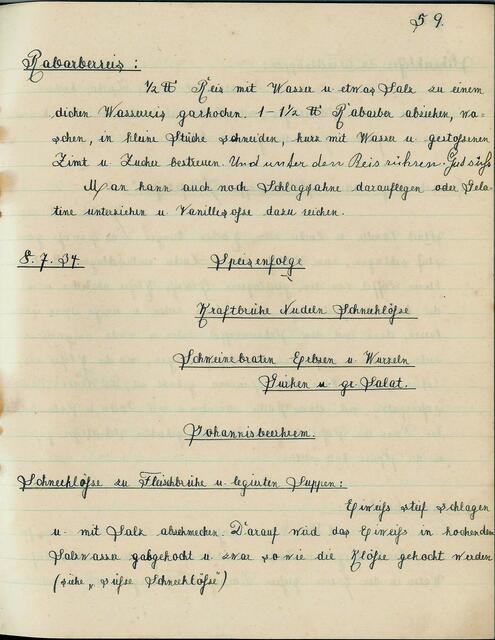 59.
Rabarberreis:
1/2 ℔ Reis mit Wasser u. etwas Salz zu einem
dicken Wasserreis garkochen. 1-1 1/2 ℔ Rabarber abziehen, wa-
schen, in kleine Stücke schneiden, kurz mit Wasser u. gestoßenen
Zimt u. Zucker bestreuen. Und unter den Reis rühren. Gut süß
Man kann auch noch Schlagsahne darauflegen oder Gela-
tine unterziehen u. Vanillesoße dazu reichen.
8.7.34. Speisenfolge
Kraftbrühe Nudeln Schneeklöße
Schweinebraten Erbsen u. Wurzeln
Gurken u. gr. Salat.
Johannisbeerkrem.
Schneeklöße zu Fleischbrühe u. legierten Suppen:
Eiweiß steif schlagen
u. mit Salz abschmecken. Darauf wird das Eiweiß in kochendem
Salzwasser gabgekocht u. zwar sowie die Klöße gekocht werden
(siehe „süße Schneeklöße")